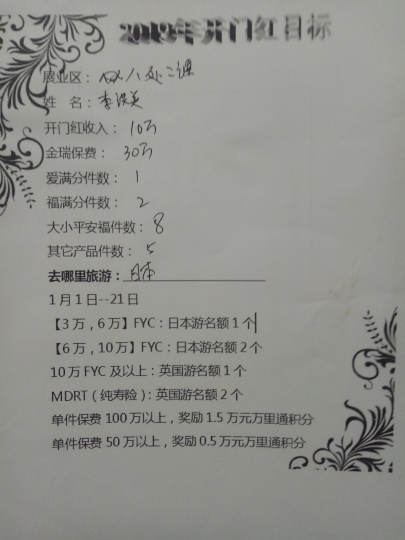 2019年开门红目标
展业区：八处二课
姓 名：李洪美
开门红收入：10万
金瑞保费：30万
爱满分件数：1
福满分件数：2
大小平安福件数：8
其它产品件数：5
去哪里旅游：日本
1月1日--21日
【3万，6万】FYC：日本游名额1个
【6万，10万】FYC：日本游名额2个
10万FYC及以上：英国游名额1个
MDRT（纯寿险）：英国游名额2个
单件保费100万以上，奖励1.5万元万里通积分
单件保费50万以上，奖励0.5万元万里通积分